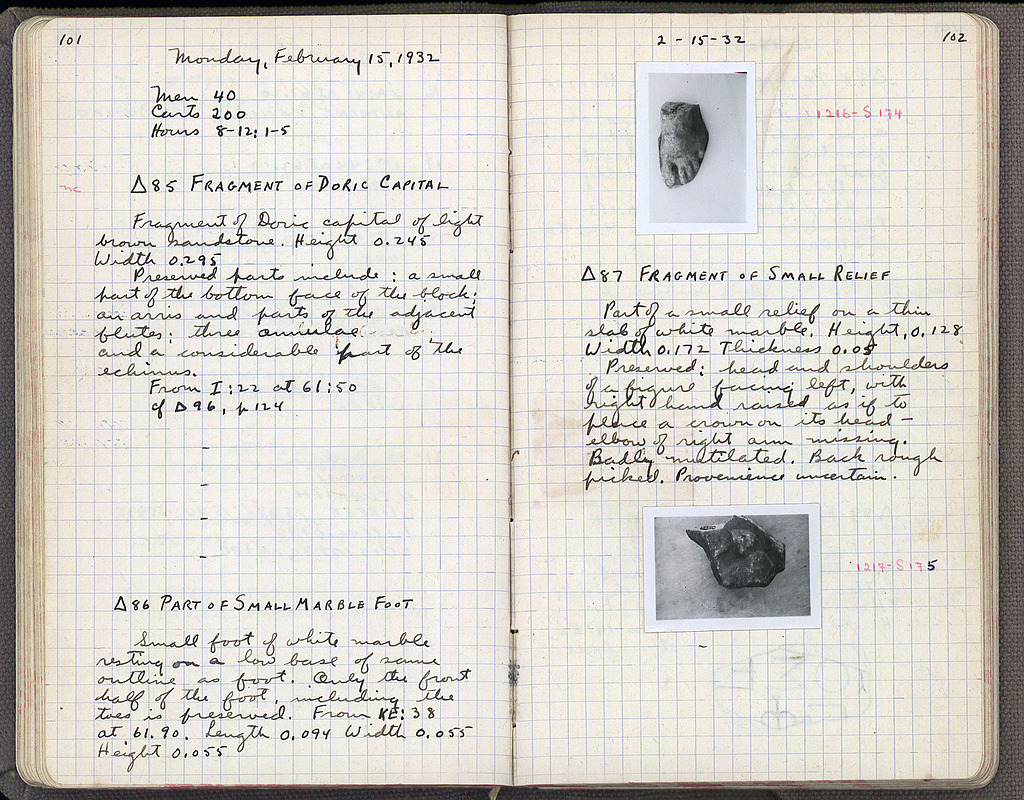 101
Monday, February 15, 1932
Men 40
Carts 200
Hours 8-12; 1-5
nc
Δ85 FRAGMENT OF DORIC CAPITAL
Fragment of Doric capital of light
brown sandstone. Height 0.245
Width 0.295
Preserved parts include: a small
part of the bottom face of the block;
an arris and parts of the adjacent
flutes; three annulae
and a considerable part of the
echinus.
From I:22 at 61:50
cf Δ96, p 124
-
-
-
-
Δ86 PART OF SMALL MARBLE FOOT
Small foot of white marble
resting on a low base of same
outline as foot. Only the front
half of the foot, including the
toes is preserved. From KE:38
at 61.90. Length 0.094 Width 0.055
Height 0.055
2-15-32
102
1216-S 174
Δ87 FRAGMENT OF SMALL RELIEF
Part of a small relief on a thin
slab of white marble. Height, 0.128
Width 0.172 Thickness 0.05
Preserved: head and shoulders
of a figure facing left, with
right hand raised as if to
place a crown on its head –
elbow of right arm missing.
Badly mutilated. Back rough
picked. Provenience uncertain.
1217-S 175
-